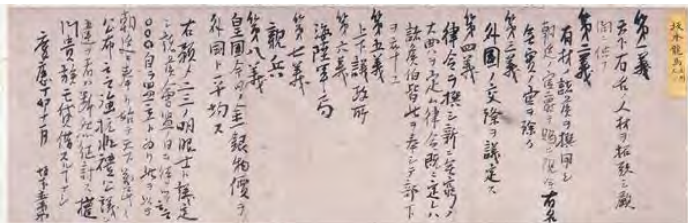 第一義
天下有名ノ人材ヲ招致シ顧
問ニ供フ
第二義
有材ノ諸侯ヲ撰用シ
朝廷ノ官爵ヲ賜ヒ現今有名
無実ノ官ヲ除ク
第三義
外国ノ交際ヲ議定ス
第四義
律令ヲ撰シ新ニ無窮ノ
大典ヲ定ム律令既ニ定レハ
諸侯伯皆此ヲ奉シテ部下
ヲ率ユ
第五義
上下議政所
第六義
海陸軍局
第七義
親兵
第八義
皇国今日ノ金銀物価ヲ
外国ト平均ス
右預メ二三ノ明眼士ト議定シ
諸侯会盟ノ日ヲ待ツテ云云
○○○自ラ盟主ト為リ此ヲ以テ
朝廷ニ奉リ始テ天下萬民ニ
公布云云強抗非礼公議ニ
違フ者ハ断然征討ス権
門貴族モ貸借スルコトナシ
慶應丁卯十一月 坂本直柔
坂本龍馬